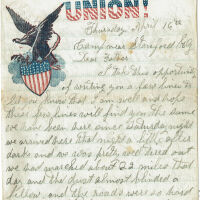 UNION!
Thursday April 16th
Camp near Stanford Ky
Dear Father
I take this opportunity
of writing you a few lines to
let you know that I am well and hope
these few lines will find you the same
we have been here since Saturday night
we arrived there that night a little after
dark and we was pretty well tired out
we had marched about 22 miles that
day and the dust almost blinded a
fellow and the roads were so hard